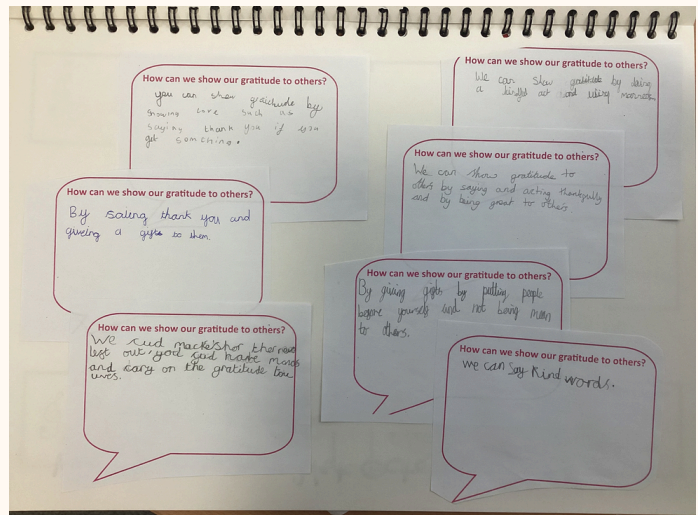 How can we show our gratitude to others?
you can show graitude by
showing care such as
saying thank you if you
get somching.
How can we show our gratitude to others?
We can show gratitude by doing
a kindful act and using manners
How can we show our gratitude to others?
We can show gratitude to
others by saying and acting thankfully
and by being great to others
How can we show our gratitude to others?
By saing thank you and
giveing a gyts to them.
How can we show our gratitude to others?
By giving gifts by putting people
before yourself and not being mean
to others.
How can we show our gratitude to others?
We cud macke shor ther not
left out, you cud have
and cary on the gratitude
How can we show our gratitude to others?
we can say Kind words.